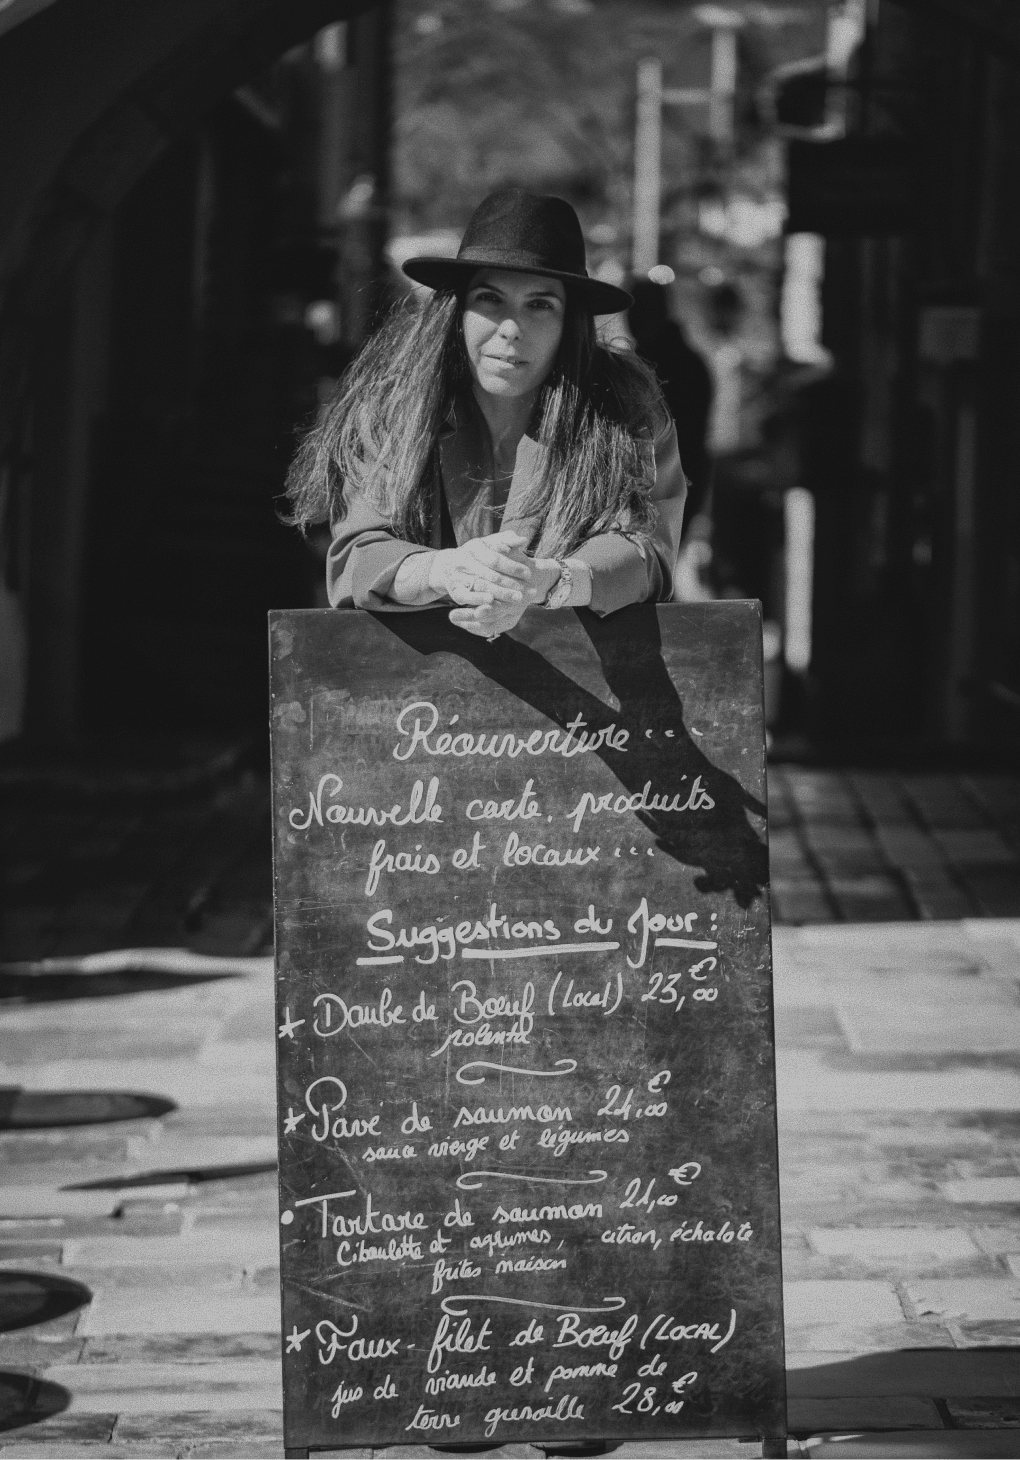 Réouverture...
Nouvelle carte, produits
frais et locaux...
Suggestions du Jour :
* Daube de Bœuf (Local) 23,00€
polenta
* Pavé de saumon 24,00€
sauce vierge et légumes
• Tartare de saumon 21,00€
Ciboulette et agrumes, citron, échalote
frites maison
* Faux-filet de Bœuf (LOCAL)
jus de viande et pomme de
terre grenaille 28,00€